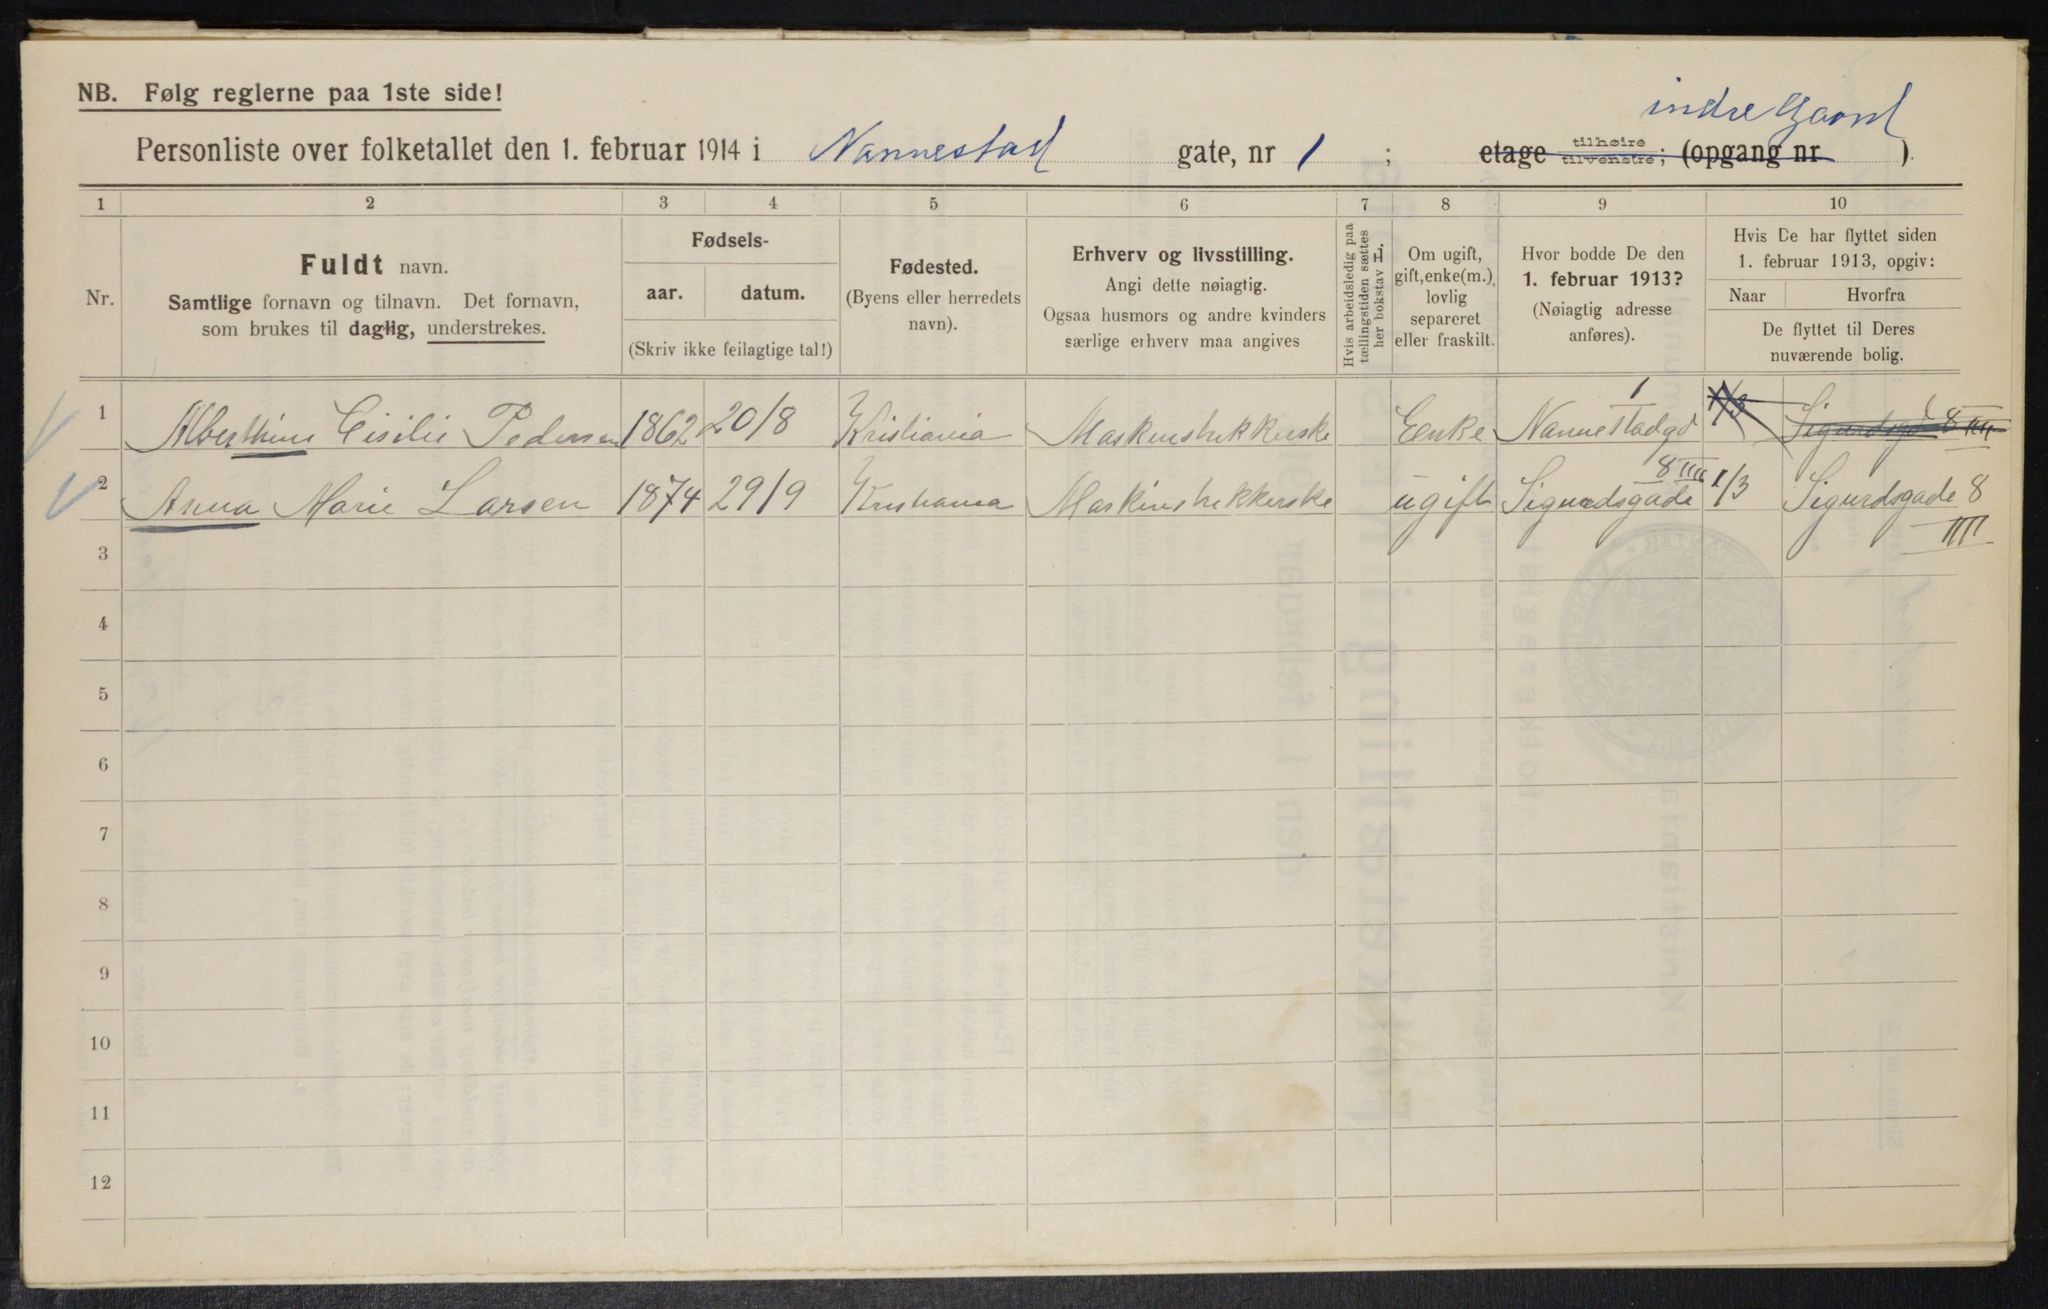 NB. Følg reglerne paa 1ste side!
indre Gaard
Personliste over folketallet den 1. februar 1914 i Nannestad gate, nr 1 ; etage tilhøire tilvenstre; (opgang nr ).
1 2 3 4 5 6 7 8 9 10
Nr.
Fuldt navn.
Samtlige fornavn og tilnavn. Det fornavn,
som brukes til daglig, understrekes.
Fødsels-
aar. datum.
(Skriv ikke feilagtige tal!)
Fødested.
(Byens eller herredets
navn).
Erhverv og livsstilling.
Angi dette nøiagtig.
Ogsaa husmors og andre kvinders
særlige erhverv maa angives
Hvis arbeidsledig paa
tællingstiden sættes
her bokstav L.
Om ugift,
gift, enke(m.),
lovlig
separeret
eller fraskilt.
Hvor bodde De den
1. februar 1913?
(Nøiagtig adresse
anføres).
Hvis De har flyttet siden
1. februar 1913, opgiv:
Naar Hvorfra
De flyttet til Deres
nuværende bolig.
1 Alberthine Cisilie Pedersen 1862 20/8 Kristiania Maskinstrikkerske Enke Nannestadgd 1 1/3 Sigurdsgd 8 IIII
2 Anna Marie Larsen 1874 29/9 Kristiania Maskinstrikkerske ugift Sigurdsgade 8 IIII 1/3 Sigurdsgade 8
IIII
3
4
5
6
7
8
9
10
11
12